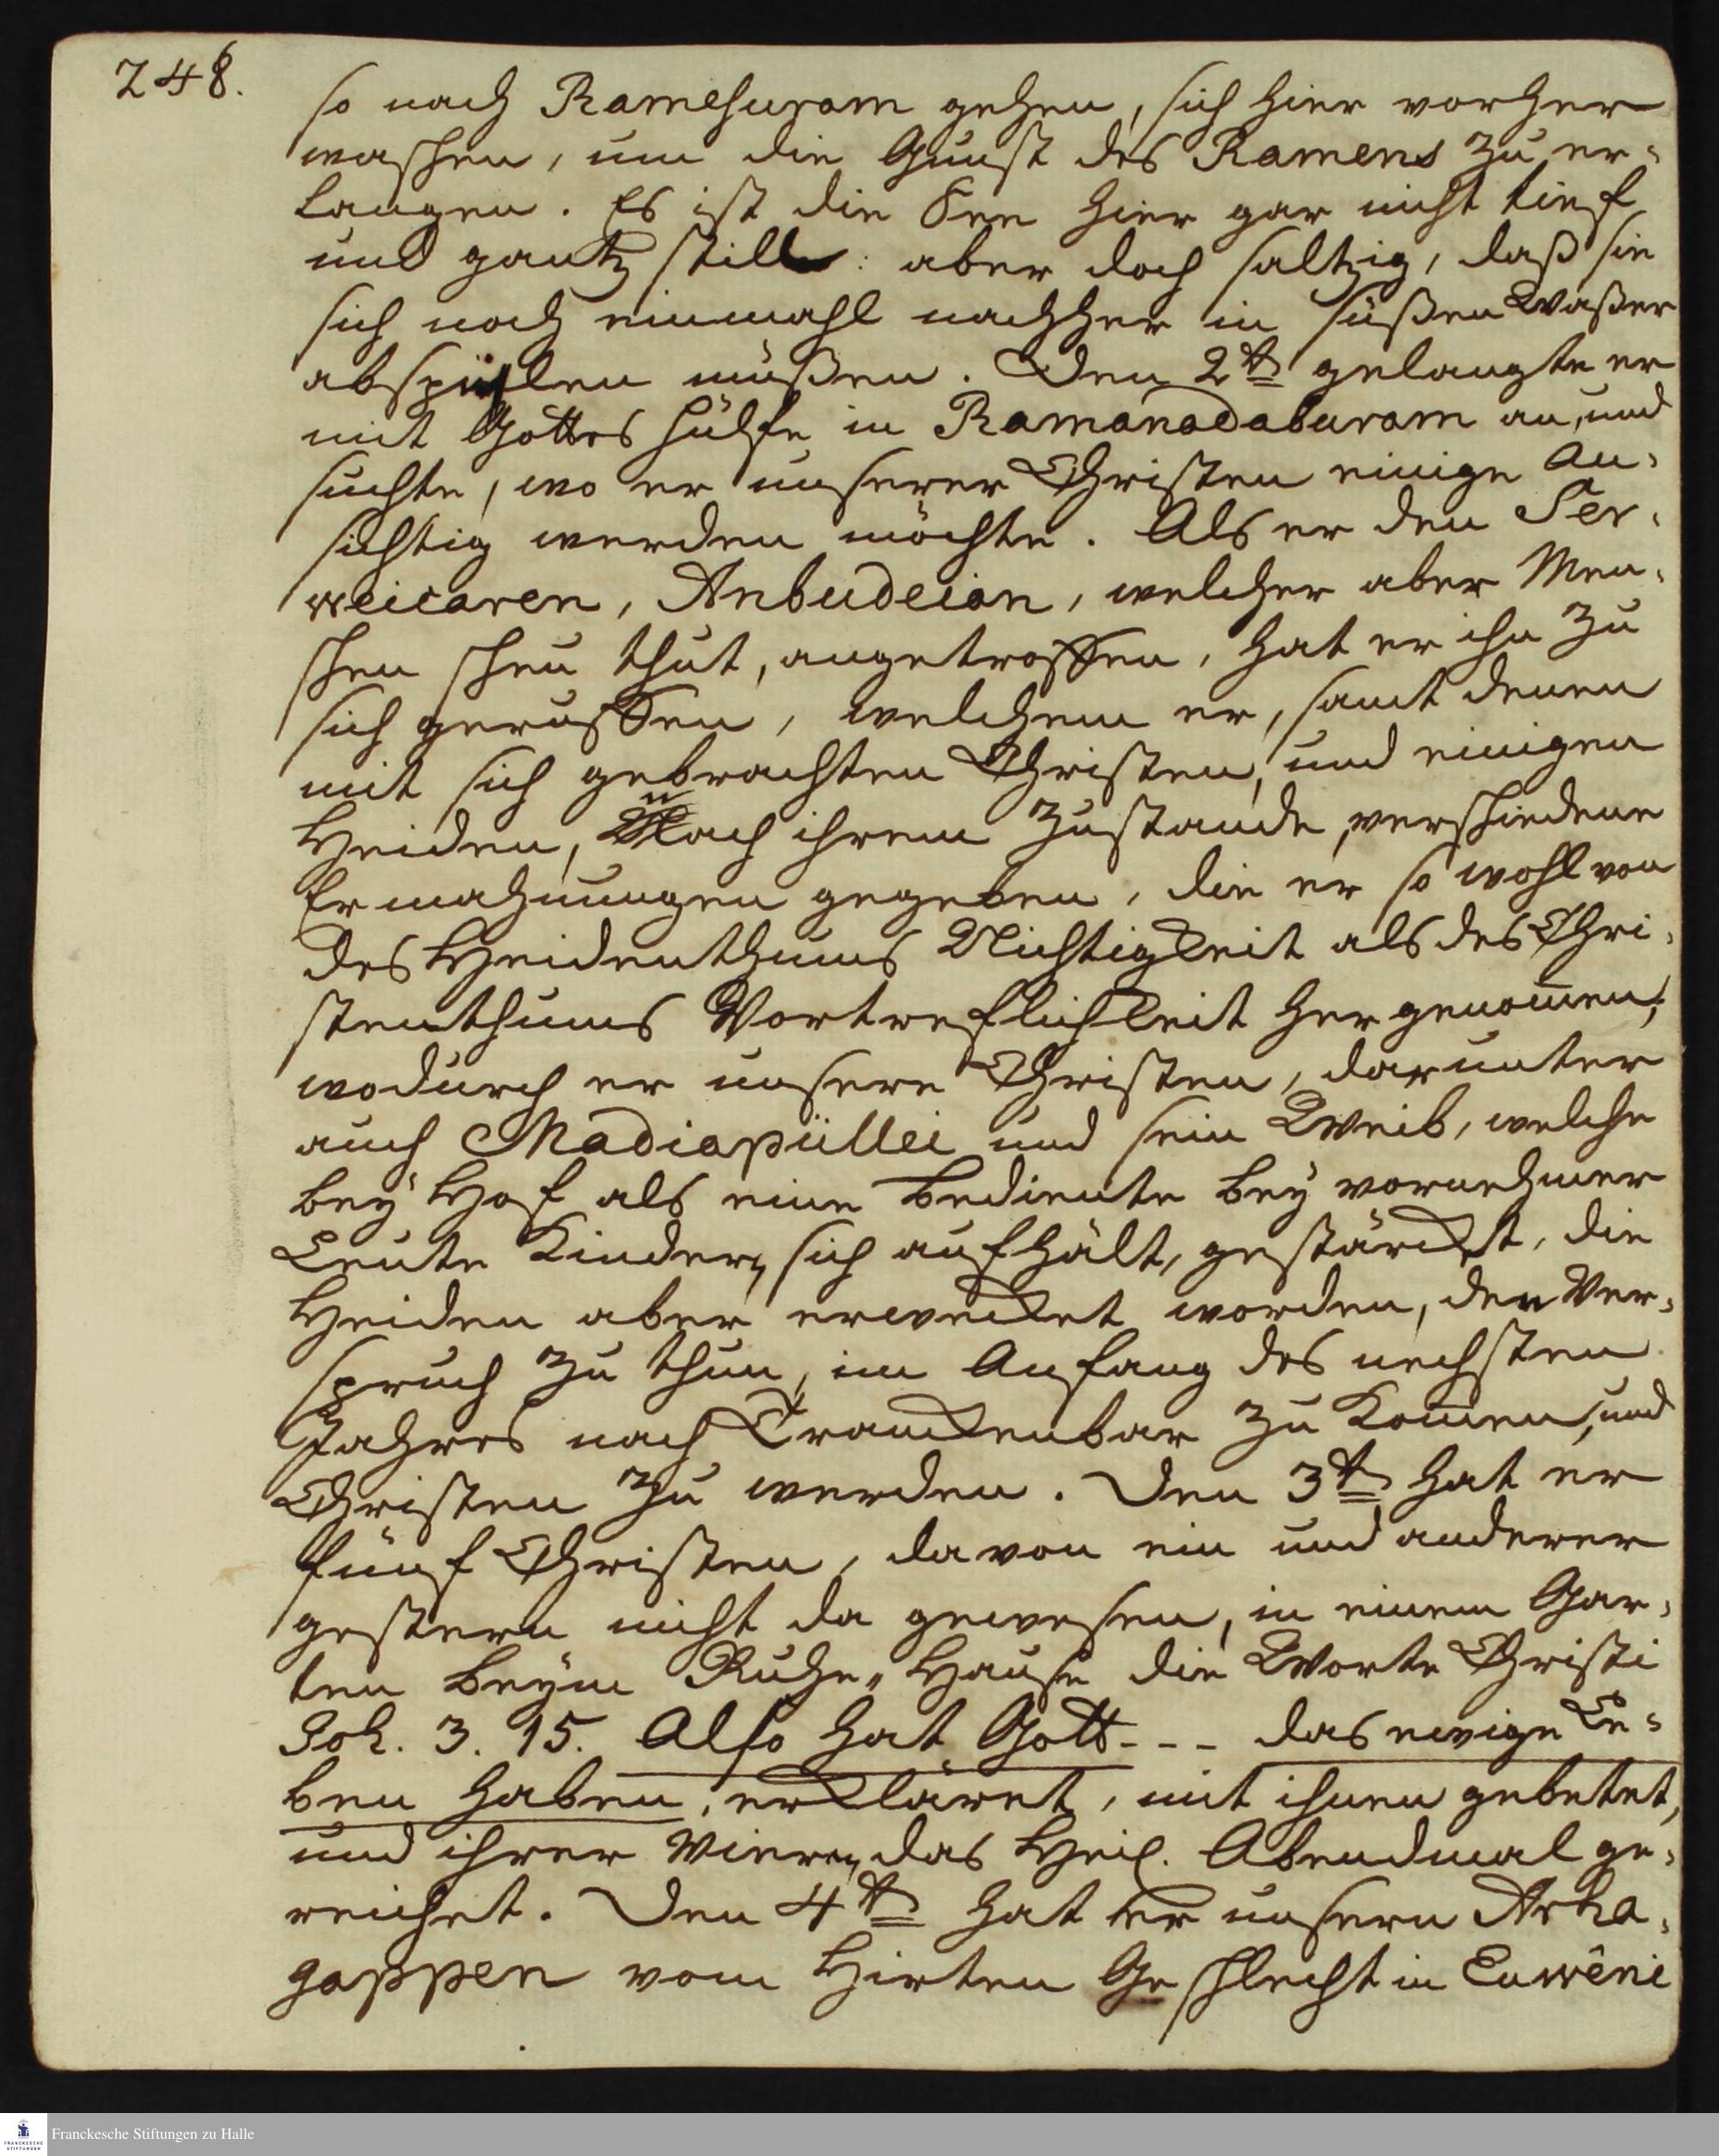 248.
so nach Ramesuram gehen, sich hier vorher
waschen, um die Gunst des Ramens zu er-
langen. Es ist die See hier gar nicht tief
und gantz still: aber doch saltzig, daß sie
sich noch einmahl nachher in süßen Waßer
abspühlen müßen. Den 2t. gelangte er
mit Gottes Hülfe in Ramanadaburam an, und
suchte, wo er unserer Christen einige an-
sichtig werden möchte. Als er den Ser-
weicaren, Anbudeian, welcher aber Men-
schen scheu thut, angetroffen, hat er ihn zu
sich geruffen, welchem er, samt denen
mit sich gebrachten Christen, und einigen
Heiden, nach ihrem Zustande, verschiedene
Ermahnungen gegeben, die er so wohl von
des Heidenthums Nichtigkeit als des Chri-
stenthums Vortreflichkeit hergenom̄en;
wodurch er unsere Christen, darunter
auch Madiapüllei und sein Weib, welche
bey Hof als eine Bediente bey vornehmer
Leute Kindern sich aufhält, gestärckt, die
Heiden aber erwecket worden, den Ver-
spruch zu thun, im Anfang des nechsten
Jahres nach Tranckenbar zu kom̄en, und
Christen zu werden. Den 3t. hat er
fünf Christen, davon ein und anderer
gestern nicht da gewesen, in einem Gar-
ten beym Ruhe-Hause die Worte Christi
Joh. 3. 15. Also hat Gott - - - das ewige Le-
ben haben, erkläret, mit ihnen gebetet,
und ihrer Vieren das Heil. Abendmal ge-
reichet. Den 4t. hat er unsern Arha-
gappen vom Hirten Geschlecht in Euwêni
Franckesche Stiftungen zu Halle